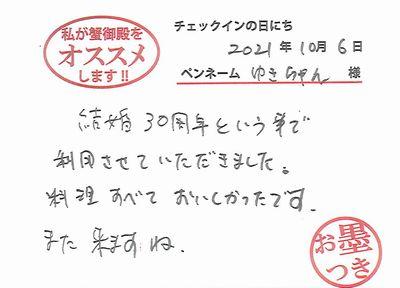 私が蟹御殿を
オススメ
します!!
チェックインの日にち
2021年10月6日
ペンネーム ゆきちゃん 様
結婚30周年という事で
利用させていただきました。
料理すべておいしかったです。
また来ますね。
お墨
つき